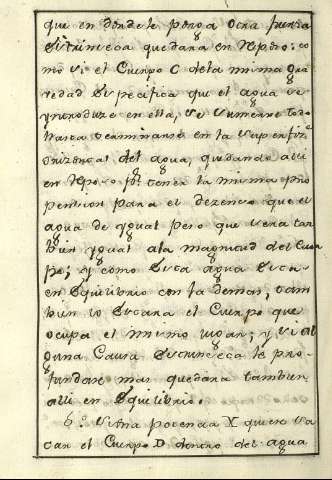 que en donde le ponga otra fuerza
Extrinseca quedara en repozo: co
mo si el Cuerpo C de la misma gra
vedad Espesifica que el agua se
yntroduze en ella, se sumerxe todo
hasta terminarse en la superfize
orizontal del agua, quedando alli
en repozo pr. tener la misma pro
pension para el dezenso que el
agua de ygual pero que sera tan
bien ygual a la magnitud del Cuer
po; y como Esta agua Esta
en Equilibrio con la demas, tam
bien lo Estara el Cuerpo que
ocupa el mismo lugar; y si al
guna Causa Extrinseca le pro
fundase mas quedara tambien
alli en Equilibrio.
6.º Si una potencia X quiere sa
car el Cuerpo D dentro del agua